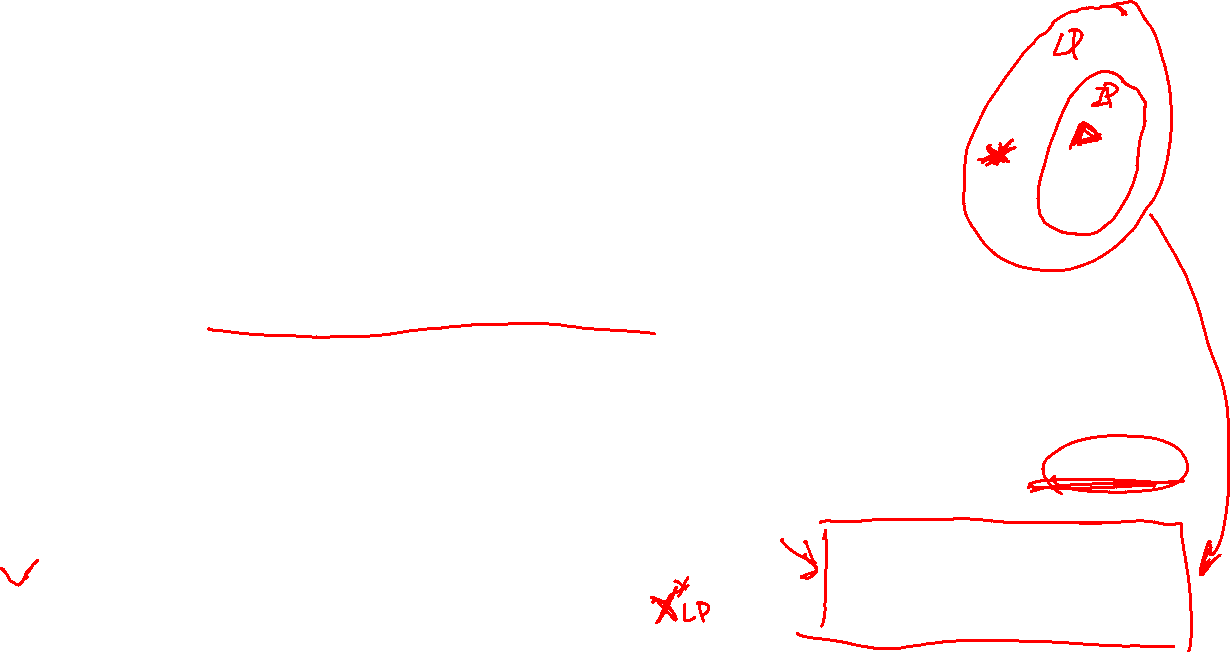 LP
IP
X*LP